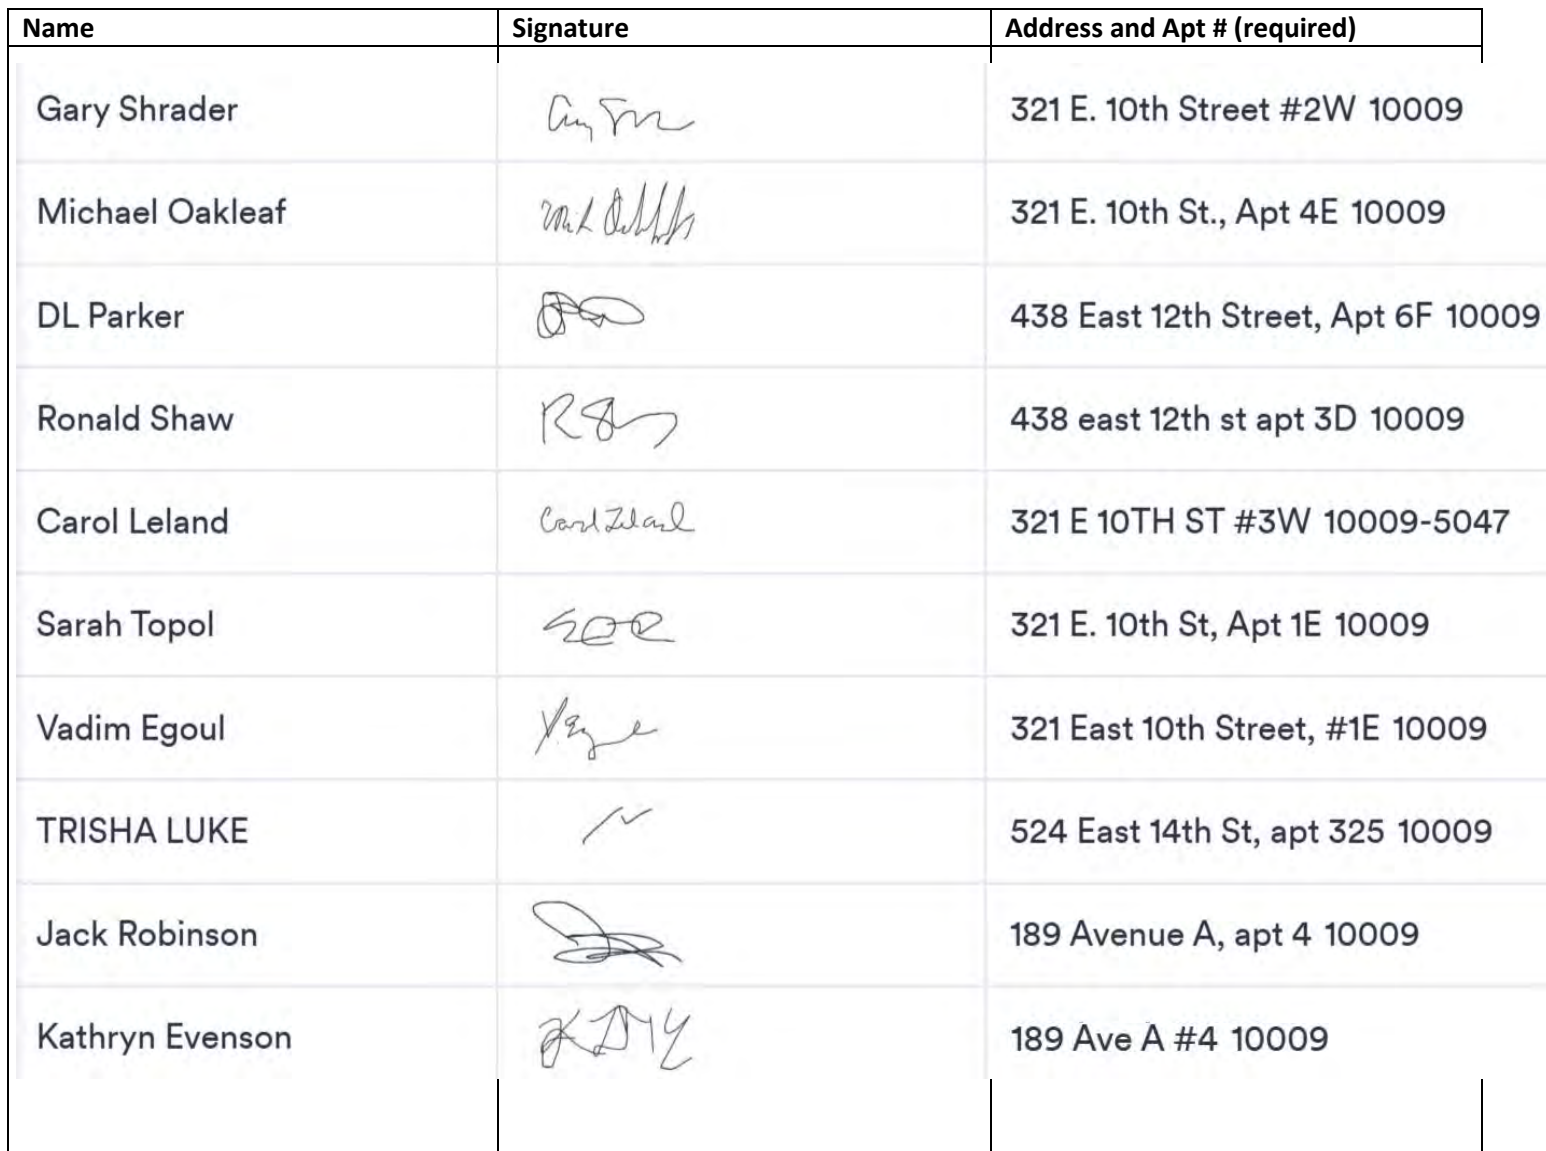 Name Signature Address and Apt # (required)
Gary Shrader 321 E. 10th Street #2W 10009
Michael Oakleaf 321 E. 10th St., Apt 4E 10009
DL Parker 438 East 12th Street, Apt 6F 10009
Ronald Shaw 438 east 12th st apt 3D 10009
Carol Leland Carol Leland 321 E 10TH ST #3W 10009-5047
Sarah Topol 321 E. 10th St, Apt 1E 10009
Vadim Egoul 321 East 10th Street, #1E 10009
TRISHA LUKE 524 East 14th St, apt 325 10009
Jack Robinson 189 Avenue A, apt 4 10009
Kathryn Evenson 189 Ave A #4 10009